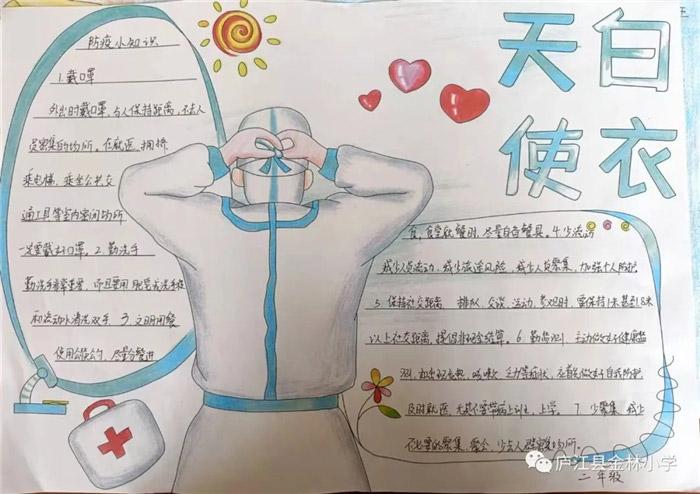 白衣
天使
防疫小知识
1.戴口罩
外出时戴口罩,与人保持距离,不去人
员密集的场所。在就医、拥挤
乘电梯、乘坐公共交
通工具等室内密闭场所
一定要戴好口罩。2.勤洗手
勤洗手非常重要,而且要用肥皂或洗手液
和流动水清洗双手。3.文明用餐
使用公筷公勺,尽量分餐进
食,食堂就餐时,尽量自备餐具。4.少流动
减少人员流动,减少旅途风险,减少人员聚集,加强个人防护
5.保持社交距离 排队、交谈、运动、参观时,要保持1米甚至1.8米
以上社交距离,提倡非现金结算。6.勤监测 主动做好健康监
测,如出现发热、咳嗽、乏力等症状,在首先做好自我防护
及时就医,尤其不要带病上班、上学。7.少聚集 减少
不必要的聚集、聚会,少去人群密集场所。
庐江县金林小学
二年级